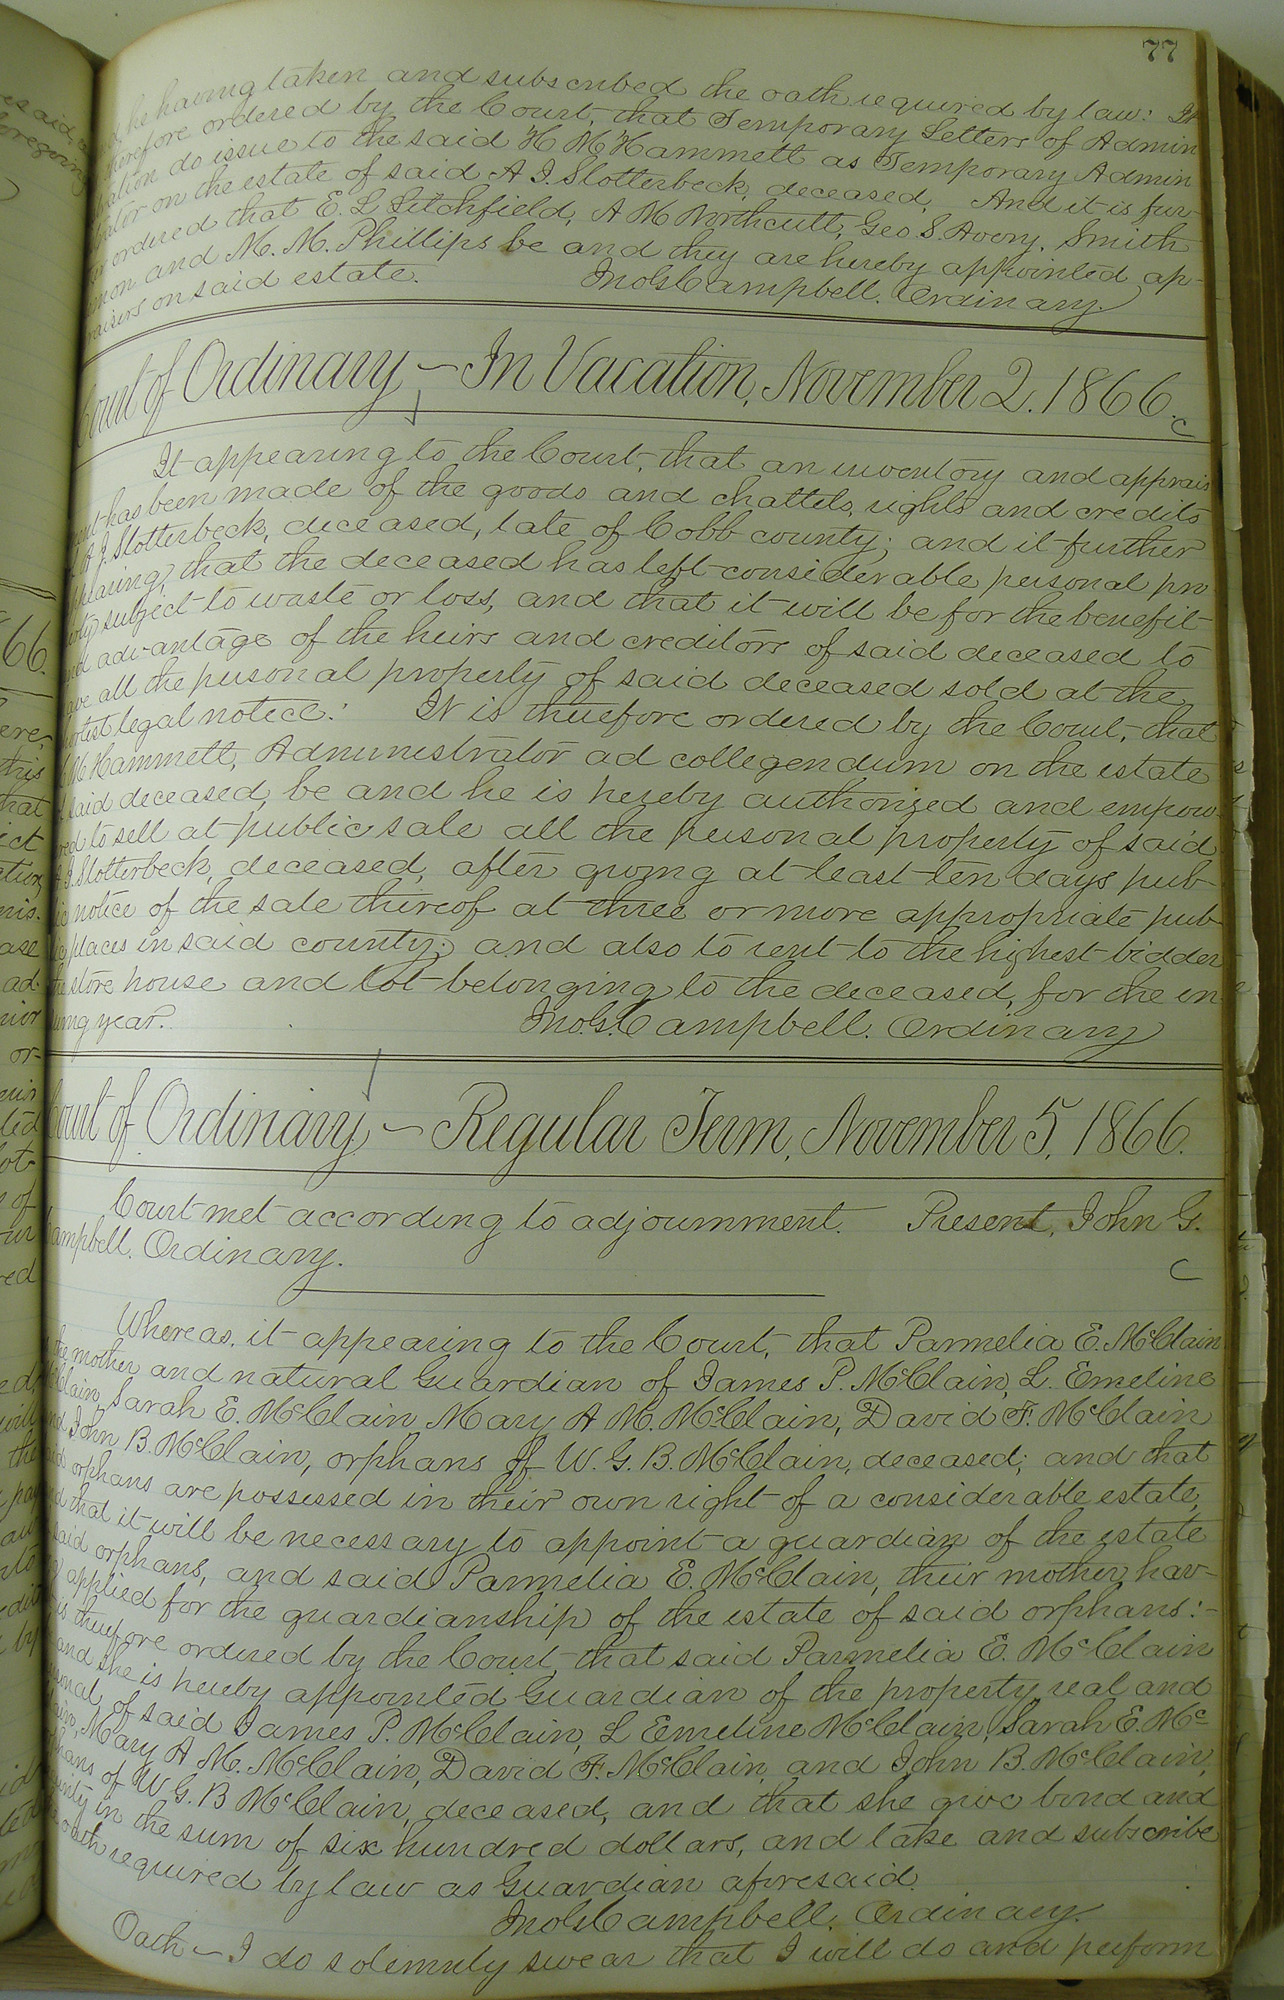 77
he having taken and subscribed the oath required by law: It
therefore ordered by the Court, that Temporary Letters of Admin
tration do issue to the said H M Hammett as Temporary Admin
trator on the estate of said A J. Slotterbeck, deceased. And it is fur-
ordered that E. L. Litchfield, A M Northcutt, Geo S. Avery, Smith
emon and M. M. Phillips be and they are hereby appointed ap-
raisers on said estate. Jno G. Campbell. Ordinary.
Court of Ordinary – In Vacation, November 2. 1866.
It appearing to the Court, that an inventory and apprais
ment has been made of the goods and chattels, rights and credits
A J. Slotterbeck, deceased, late of Cobb county; and it further
ppearing, that the deceased has left considerable personal pro
perty subject to waste or loss, and that it will be for the benefit
and advantage of the heirs and creditors of said deceased to
have all the personal property of said deceased sold at the
shortest legal notice: It is therefore ordered by the Court, that
M Hammett, Administrator ad collegendum on the estate
said deceased, be and he is hereby authorized and empow-
red to sell at public sale all the personal property of said
A J. Slotterbeck, deceased, after giving at least ten days pub-
lic notice of the sale thereof at three or more appropriate pub-
lic places in said county; and also to rent to the highest bidder
the store house and lot belonging to the deceased, for the en-
suing year. Jno G. Campbell. Ordinary
Court of Ordinary – Regular Term, November 5, 1866.
Court met according to adjournment. Present, John G.
Campbell. Ordinary.
Whereas, it appearing to the Court, that Parmelia E. McClain
the mother and natural Guardian of James P. McClain, L. Emeline
McClain, Sarah E. McClain, Mary A M. McClain, David F. McClain
and John B. McClain, orphans of W. G. B. McClain, deceased; and that
said orphans are possessed in their own right of a considerable estate,
and that it will be necessary to appoint a guardian of the estate
said orphans, and said Parmelia E. McClain, their mother, hav-
applied for the guardianship of the estate of said orphans:-
is therefore ordered by the Court, that said Parmelia E. McClain
and she is hereby appointed Guardian of the property, real and
sonal, of said James P. McClain, L Emeline McClain, Sarah E. Mc-
lain, Mary A M. McClain, David F. McClain, and John B. McClain,
phans of W G. B McClain, deceased, and that she give bond and
curity in the sum of six hundred dollars, and take and subscribe
the oath required by law as Guardian aforesaid.
Jno G. Campbell. Ordinary.
Oath – I do solemnly swear that I will do and perform